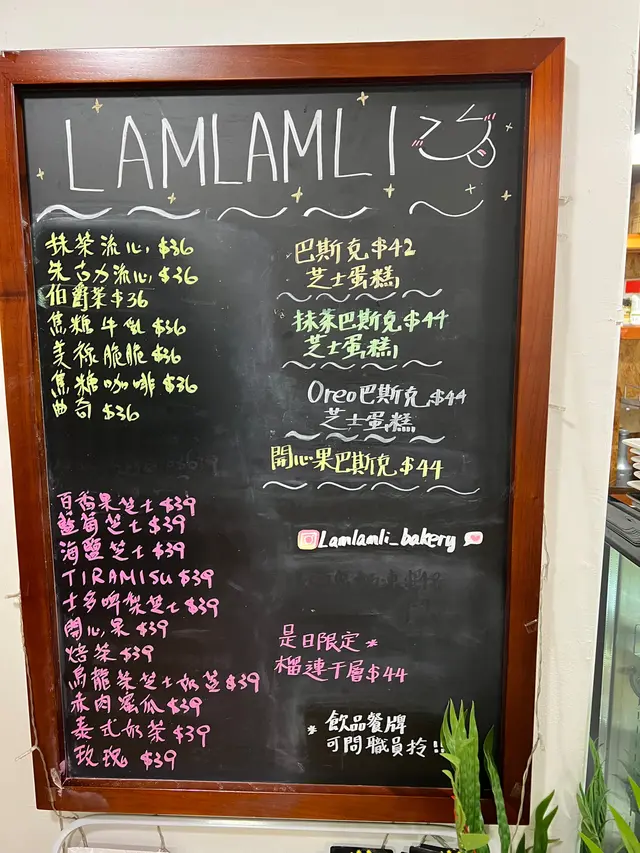 LAMLAMLI
抹茶流心 $36
朱古力流心 $36
伯爵茶 $36
焦糖牛乳 $36
美祿脆脆 $36
焦糖咖啡 $36
曲奇 $36
百香果芝士 $39
藍莓芝士 $39
海鹽芝士 $39
TIRAMISU $39
士多啤梨芝士 $39
開心果 $39
焙茶 $39
烏龍茶芝士奶蓋 $39
赤肉蜜瓜 $39
泰式奶茶 $39
玫瑰 $39
巴斯克 $42
芝士蛋糕
抹茶巴斯克 $44
芝士蛋糕
Oreo巴斯克 $44
芝士蛋糕
開心果巴斯克 $44
Lamlamli_bakery
是日限定 *
榴連千層 $44
* 飲品餐牌
可問職員拎!!